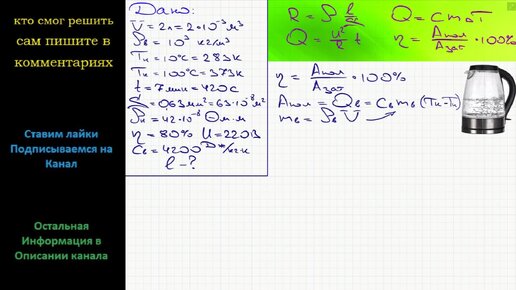 кто смог решить
сам пишите в
комментариях
Ставим лайки
Подписываемся на
Канал
Остальная
Информация в
Описании канала
Дано:
V = 2л = 2·10⁻³ м³
ρв = 10³ кг/м³
Tн = 10°C = 283К
Tк = 100°C = 373К
t = 7мин = 420с
S = 0,63мм² = 63·10⁻⁸м²
ρн = 42·10⁻⁸ Ом·м
η = 80% U = 220В
Cв = 4200 Дж/кг·К
l - ?
R = ρ l/S
Q = cm△T
Q = U²/R t
η = Aпол/Aзат · 100%
η = Aпол/Aзат · 100%
Aпол = Qв = Cв mв (Tк - Tн)
mв = ρв V